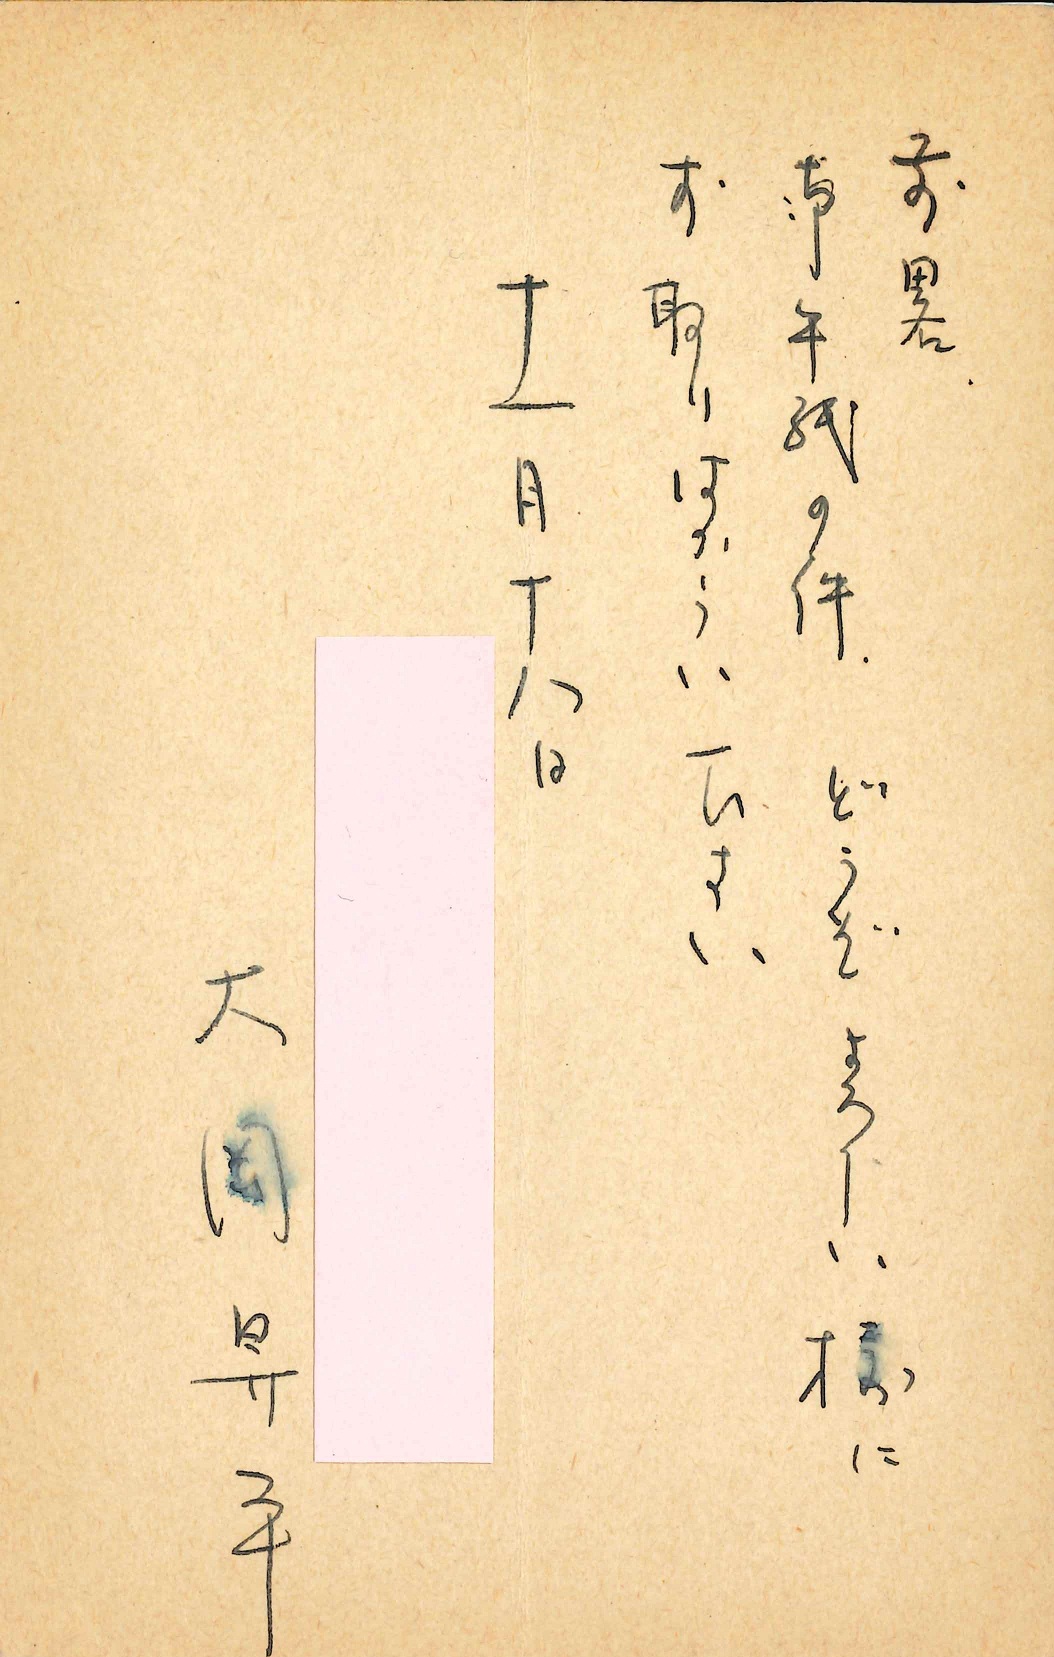 前畧.
御手紙の件. どうぞよろしい様に
お取りはからい下さい
十一月十八日
大岡昇平